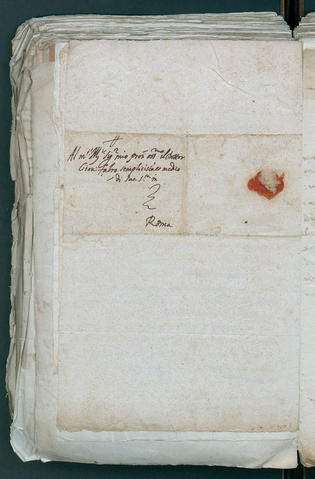 Al m.to Mg.co Sig.r mio pron oss.mo il Dottor
Gion Fabro semplicista et medico
di Sua S.tà
Roma